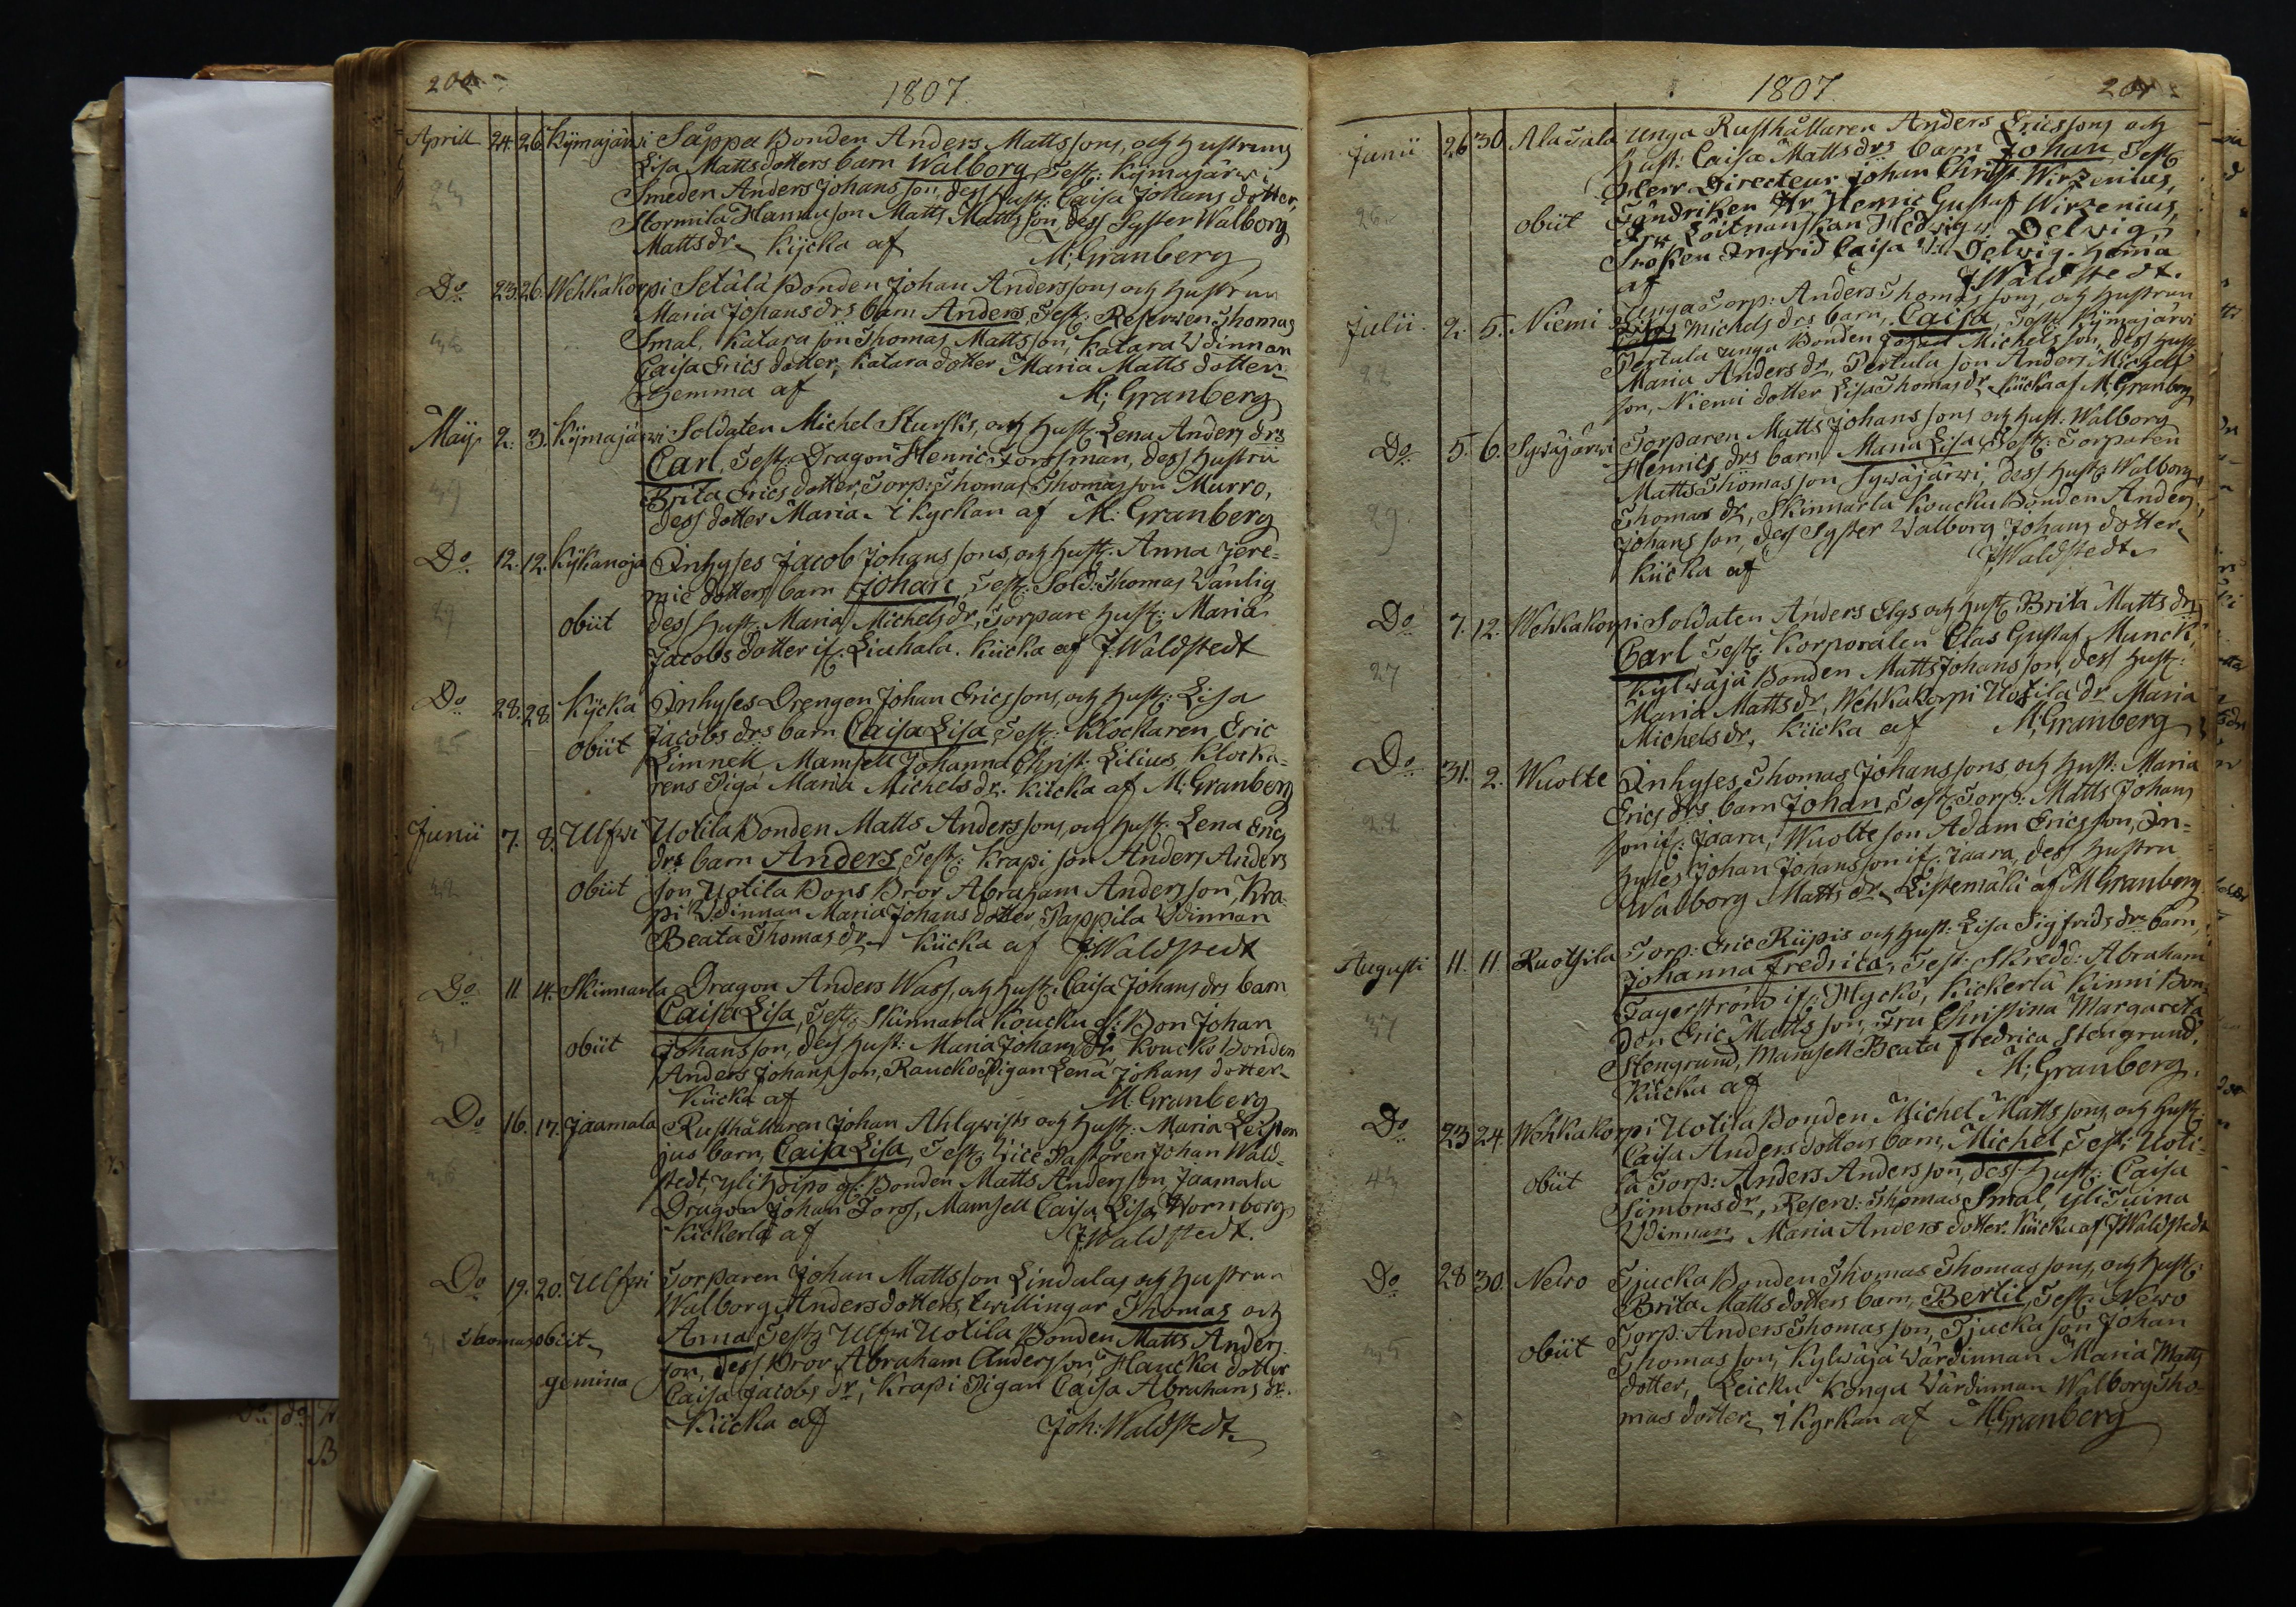 200
1807.
Aprill 24. 26. Kijmajärvi Såppa Bonden Anders Mattssons, och Hustruns
Lisa Mattsdotters barn Walborg Test: Kijmajärwi
24 Smeden Anders Johansson, dess Hust: Caisa Johans dotter,
Hormila Hemmason Matts Mattsson, dess Syster Walborg
Matts dr. Kijcka af M; Granberg
Do 23. 26. Wehkakorpi Setälä Bonden Johan Anderssons och Hustrun
Maria Johans drs barn Anders, Test: Reserven Thomas
Smal, Katara son Thomas Mattsson, Katara Wdinnan
Caisa Erics dotter, Katara dotter Maria Matts dotter
Hemma af M; Granberg
Maij 2. 3. Kijmajärwi Soldaten Michel Sturks, och Hust: Lena Anders drs
Carl, Test: Dragon Henric Forssman, dess Hustru
Brita Erics dotter, Torp: Thomas Thomasson Murro,
dess dotter Maria. i Kyckan af M: Granberg
Do 12. 12. Kijkanoja Inhyses Jacob Johanssons, och Hust: Anna Jere=
mie dotters barn Johan, Test: Sold: Thomas Wänlig
29 obiit dess Hust: Maria Michels dr, Torpare Hust: Maria
Jacobs dotter if: Liuhala. Kücka af J. Waldstedt
Do 28. 28. Kijcka Inhyses Drengen Johan Ericssons, och Hust: Lisa
25 obiit Jacobs drs barn Caisa Lisa, Test: Klockaren Eric
Limnell Mamsell Johanna Christ: Lilius, Klocka=
rens Piga Maria Michels dr. Kücka af M: Granberg
Junii 7. 8. Ulfwi Uotila Bonden Matts Anderssons, och Hust: Lena Erics
drs barn Anders, Test: Krapi son Anders Anders
obiit son Uotila Bons Bror Abraham Andersson, Kra
pi Wdinnan Maria Johans dotter, Pappila Wdinnan
Beata Thomas dr. Kücka af J. Waldstedt
Do 11. 14. Skinnarla Dragon Anders Wass, och Hust: Caisa Johans drs barn
Caisa Lisa, Test: Skinnarla Koucku gl: Bon Johan
31 obiit Johansson, dess Hust: Maria Johans dr Koucko Bonden
Anders Johansson, Raucko Pigan Lena Johans dotter
Kücka af M. Granberg
Do 16. 17. Jaamala Rusthållaren Johan Ahlqwists och Hust: Maria Leiston
jus barn, Caisa Lisa, Test: Vice Pastoren Johan Wald=
stedt, yli Hoipo gl: Bonden Matts Andersson, Jaamala
Dragon Johan Fors, Mamsell Caisa Lisa Hornborg
Kickerla af J. Waldstedt.
Do 19. 20. Ulfwi Torparen Johan Mattsson Lindalas och Hustrun
Walborg Andersdotters, twillingar Thomas och
31 Thomas obiit Anna, Test: Ulfwi Uotila Bonden Matts Anders
gemina son, dess Bror Abraham Andersson, Haucka dotter
Caisa Jacobs dr, Krapi Pigan Caisa Abrahams dr.
Kücka af Joh: Waldstedt
1807. 201
Junii 26 30. Ala Tala Unga Rusthållaren Anders Ericssons och
Hust: Caisa Matts drs barn Johan, Test
Herr Directeur Johan Christ: Wirzenius,
26. obiit Fändriken Hr Henric Gustaf Wirzenius,
Fru Löitnanskan Hedwig v. Delvig,
Fröken Ingrid Caisa v. Delwig. hema
af J Waldstedt.
Julii. 2. 5. Niemi Unga Torp: Anders Thomassons, och Hustrun
Lisa Michels drs barn, Caisa, Test: Kijmajärwi
22 Pertula unga Bonden Johan Michelsson, dess Hust
Maria Anders dr, Pertula son Anders Michels
son, Niemi dotter Lisa Thomas dr. Kücka af M: Granberg
Do 5. 6. Sywäjärwi Torparen Matts Johanssons och Hust: Walborg
Henrics drs barn, Maria Lisa, Test: Torparen
Matts Thomasson Sywäjärwi, dess Hust: Walborg
29. Thomas dr, Skinnarla Koucku Bonden Anders
Johansson, dess Syster Walborg Johans dotter
Kücka af J Waldstedt
Do 7. 12. Wehkakorpi Soldaten Anders Elgs och Hust: Brita Matts drs
Carl Test: Korporalen Clas Gustaf Munck,
27 Kylwäjä Bonden Matts Johansson, dess Hust:
Maria Matts dr, Wehkakorpi Uotila dr Maria
Michels dr, Kücka af M; Granberg
Do 31. 2. Wuolte Inhyses Thomas Johanssons, och Hust: Maria
Erics drs barn Johan, Test: Torp: Matts Johans
22 son if: Jaara, Wuolte son Adam Ericsson, In=
hyses Johan Johansson if: Jaara, dess Hustru
Walborg Matts dr. Listemäki af M Granberg
Augusti 11. 11. Ruotsila Torp: Eric Riipis och Hust: Lisa Sigfrids drs barn
Johanna Fredrica, Test: Skredd: Abraham
37 Fagerström if: Myckö, Kickerlä Kinni Bon=
den Eric Mattsson, Fru Christina Margareta
Stengrund, Mamsell Beata Fredrica Stengrund.
Kücka af M; Granberg.
Do 23 24. Wehkakorpi Uotila Bonden Michel Mattssons och Hust:
Caisa Anders dotters barn, Michel, Test: Uoti=
obiit la Torp: Anders Andersson, dess Hust: Caisa
Simons dr, Reserv: Thomas Smal, yli Tuina
Wdinnan, Maria Anders dotter. Kücka af J Waldstedt
Do 28 30. Newo Tjucka Bonden Thomas Thomassons, och Hust:
Brita Matts dotters barn, Bertil, Test: Newo
obiit Torp: Anders Thomasson, Tjucka son Johan
Thomasson, Kylwäjä Wärdinnan Maria Matts
dotter, Leicku Konga Wärdinnan Walborg Tho=
mas dotter i Kyrkan af M: Granberg